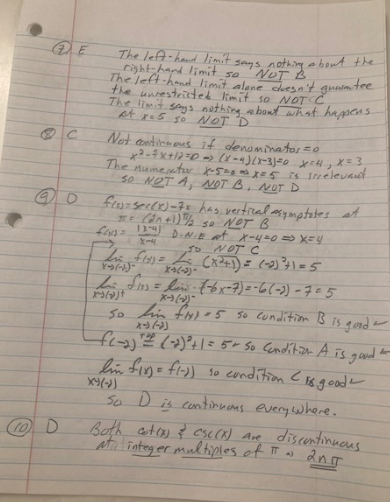 ⑦ E The left-hand limit says nothing about the
right-hand limit so NOT B
The left-hand limit alone doesn't guarantee
the unrestricted limit so NOT C
The limit says nothing about what happens
at x=5 so NOT D
⑧ C Not continuous if denominator=0
x²-7x+12=0 ⇒ (x-4)(x-3)=0 x=4, x=3
The numerator x-5=0 ⇒ x=5 is irrelevant
so NOT A, NOT B, NOT D
⑨ D f(x)=sec(x)-7 has vertical asymptotes at
(2n+1)π/2 so NOT B
f(x)= |x-4|/x-4 D.N.E at x-4=0 ⇒ x=4
so NOT C
lim x→(-2)⁻ f(x) = lim x→(-2)⁻ (x²+1) = (-2)²+1=5
lim x→(-2)⁺ f(x) = lim x→(-2) (-6x-7)=-6(-2)-7=5
so lim x→(-2) f(x) = 5 so condition B is good
f(-2) = (-2)²+1=5 so condition A is good
lim x→(-2) f(x) = f(-2) so condition C is good
So D is continuous everywhere.
⑩ D Both cot(x) & csc(x) are discontinuous
at integer multiples of π 2nπ